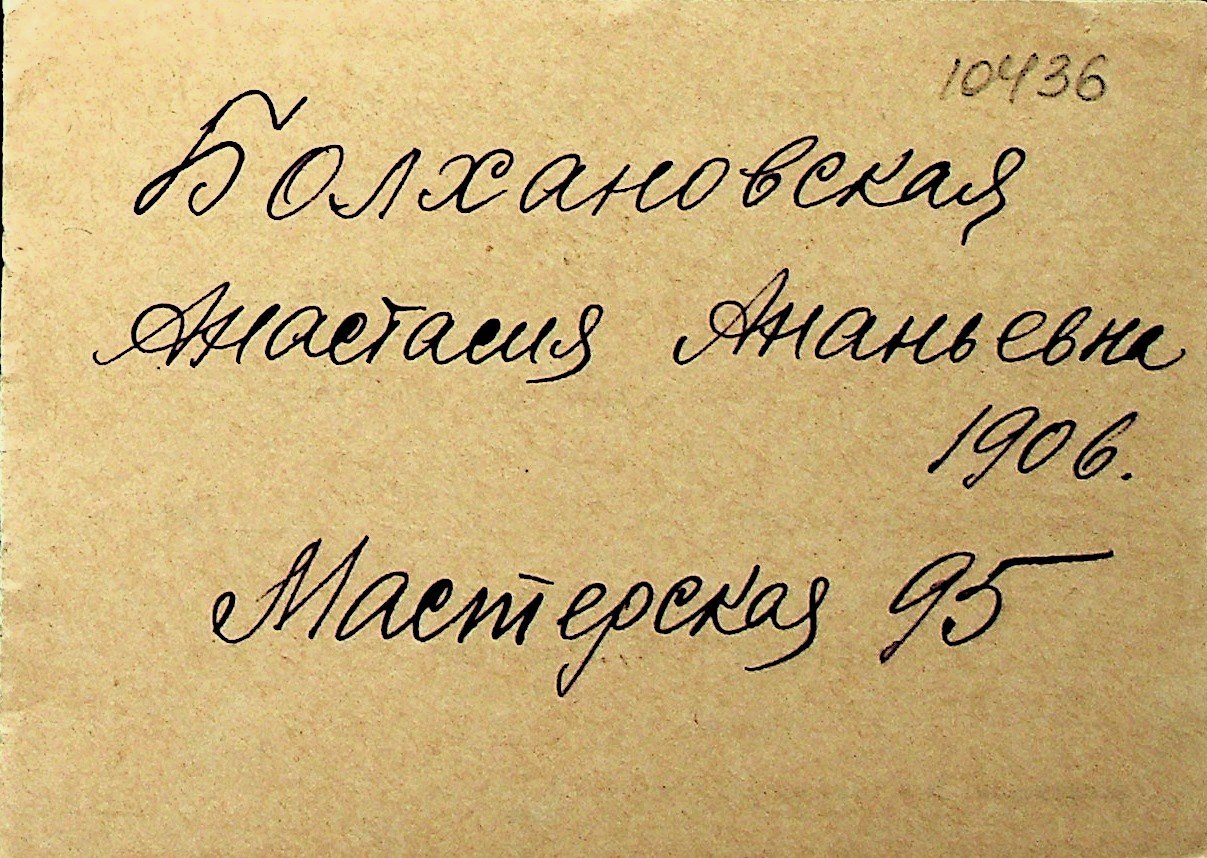 10436
Болхановская
Анастасия Ананьевна
1906.
Мастерская 95